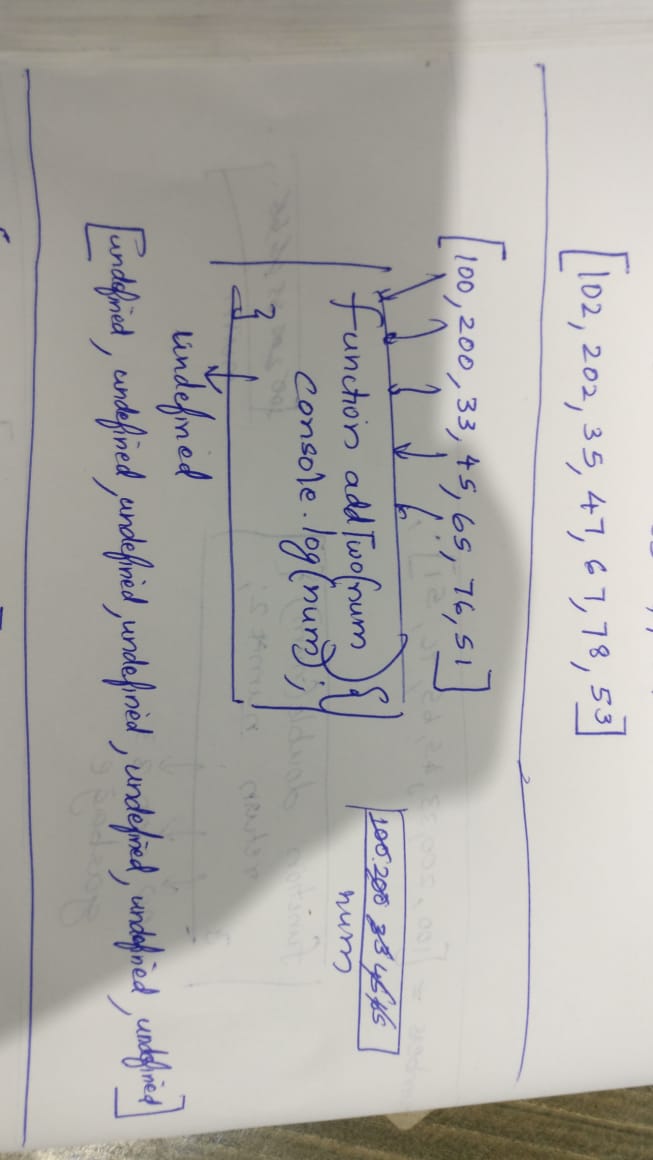 [102, 202, 35, 47, 67, 78, 53]
[100, 200, 33, 45, 65, 76, 51]
function addTwo(num) {
console.log(num);
}
100 200 33 45 65
num
undefined
[undefined, undefined, undefined, undefined, undefined, undefined, undefined]